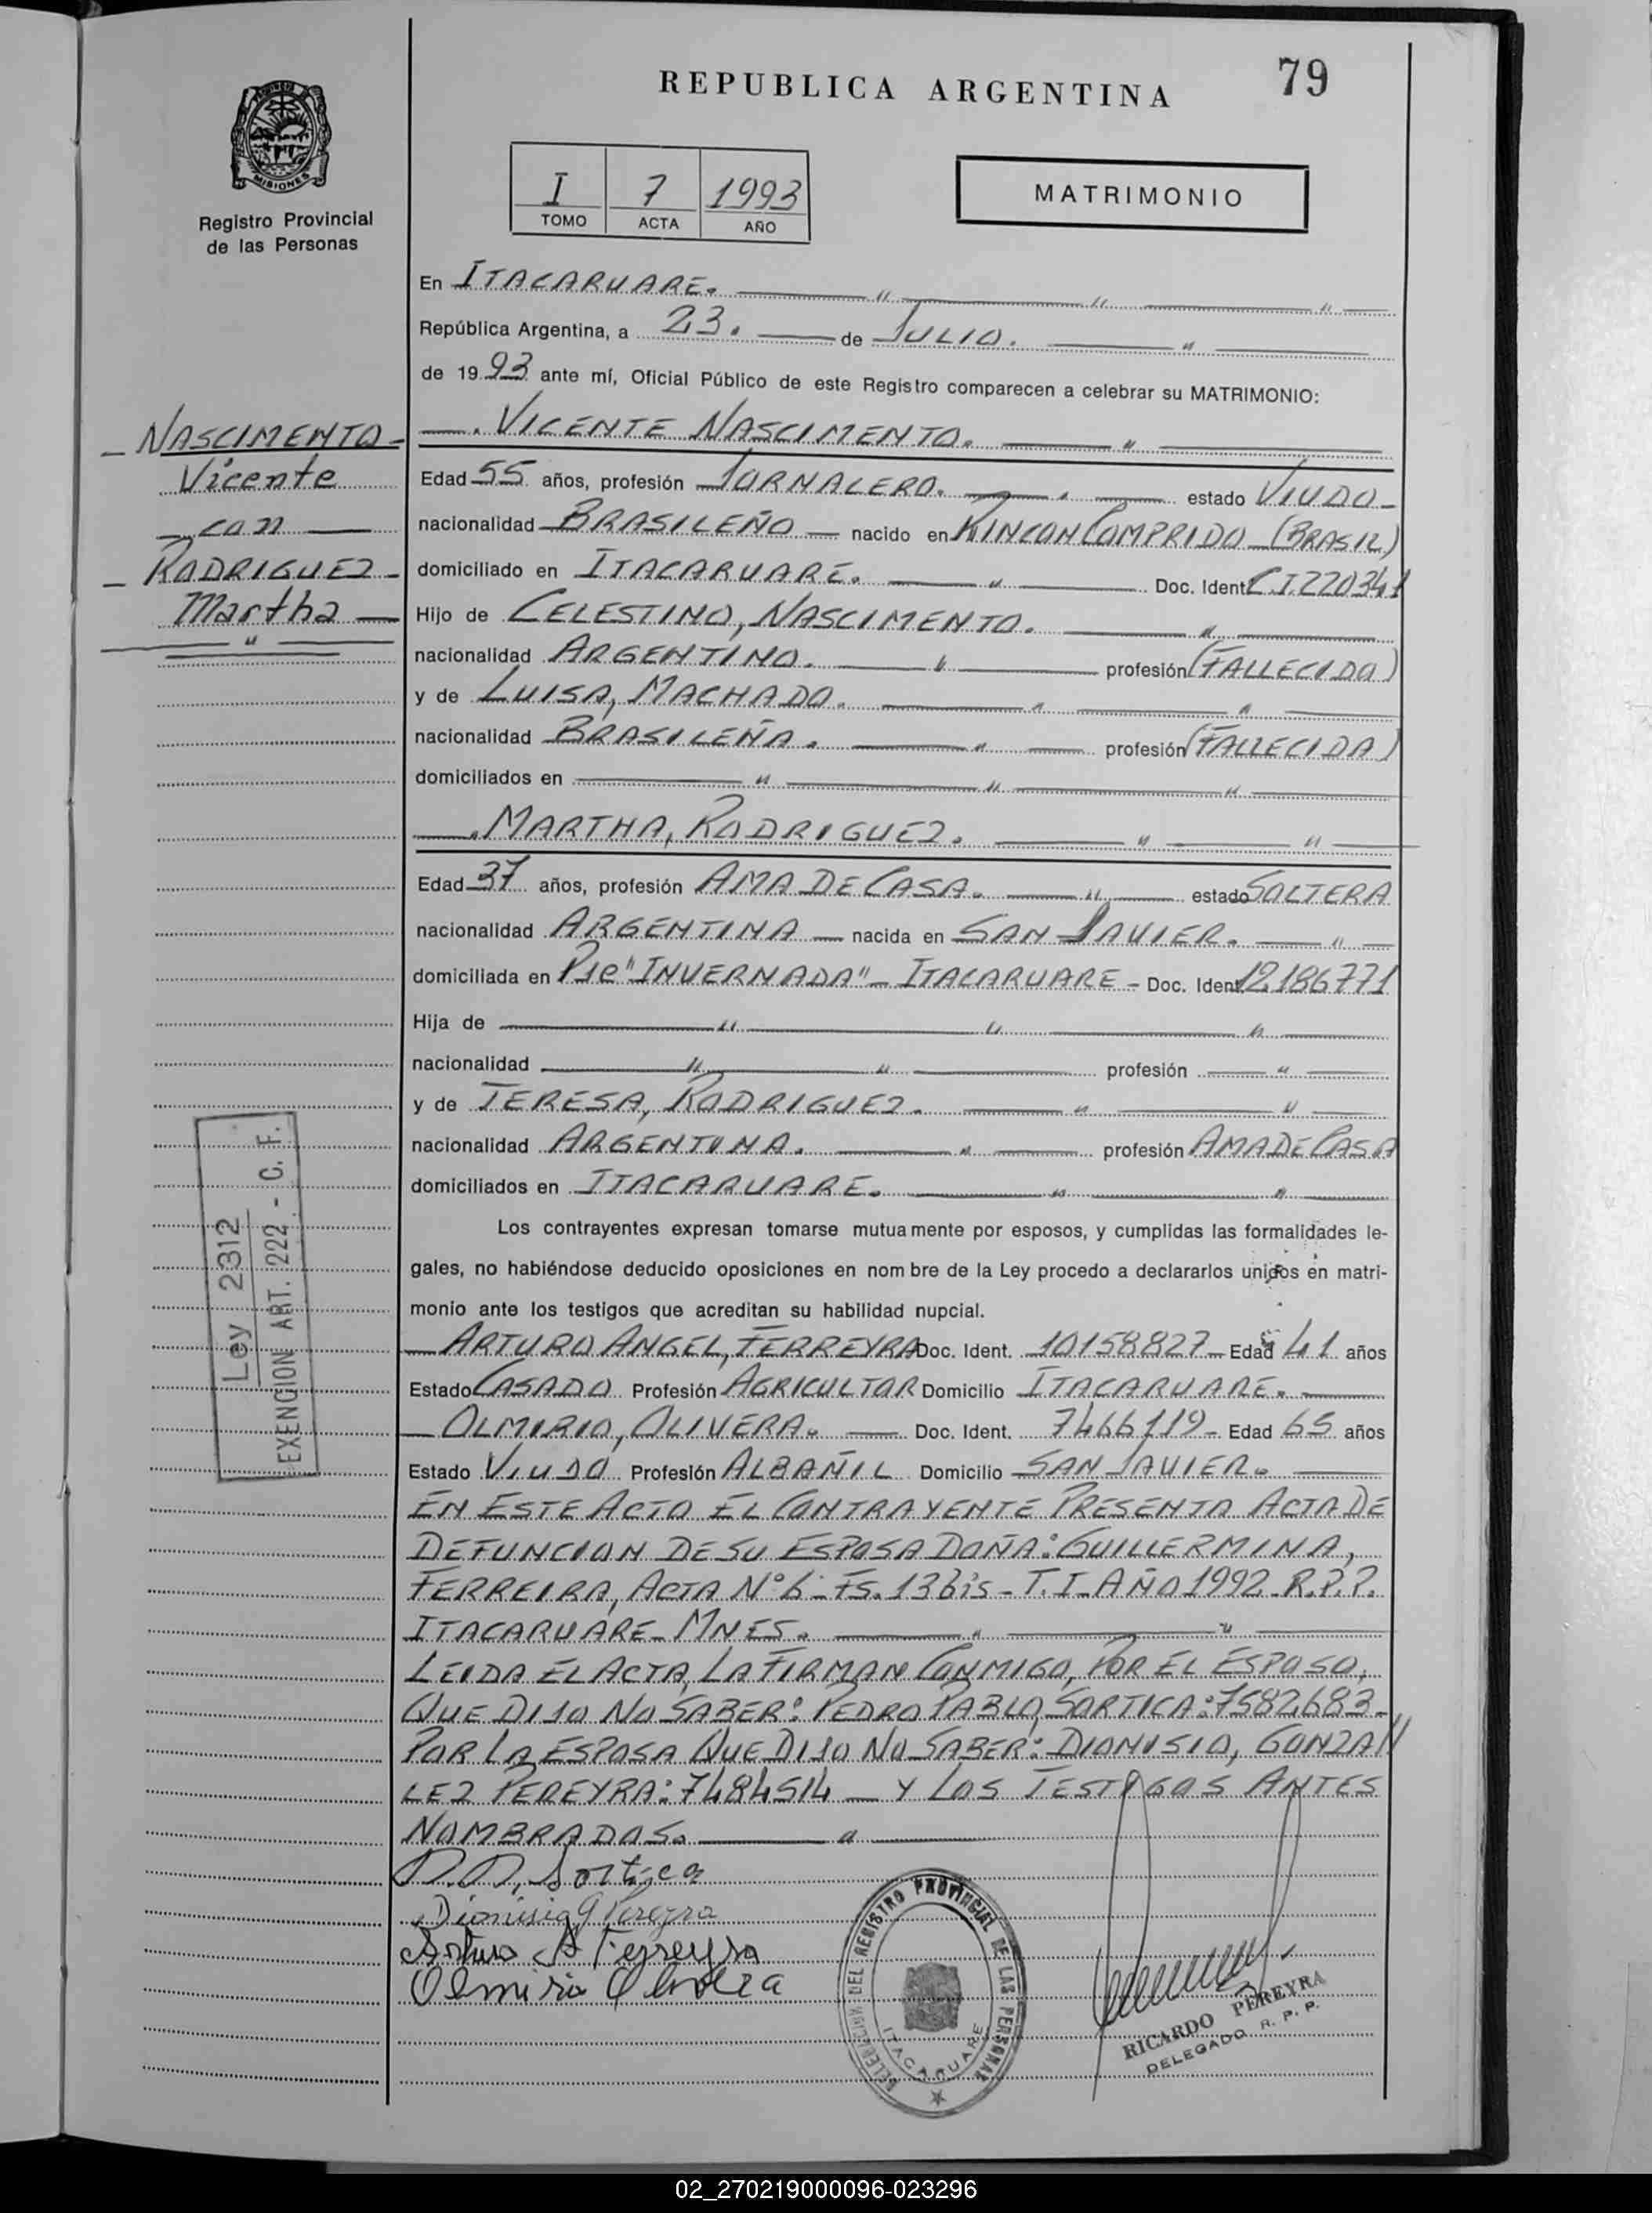 REPUBLICA ARGENTINA
79
MISIONES
Registro Provincial
de las Personas
I 7 1993
TOMO ACTA AÑO
MATRIMONIO
En ITACARUARE.
República Argentina, a 23. de JULIO.
de 1993 ante mí, Oficial Público de este Registro comparecen a celebrar su MATRIMONIO:
NASCIMENTO
Vicente
con
RODRIGUEZ
Martha
VICENTE NASCIMENTO.
Edad 55 años, profesión JORNALERO. estado VIUDO
nacionalidad BRASILEÑO nacido en RINCON COMPRIDO (BRASIL)
domiciliado en ITACARUARE. Doc. Ident. C.I.220341
Hijo de CELESTINO, NASCIMENTO.
nacionalidad ARGENTINO. profesión (FALLECIDO)
y de LUISA, MACHADO.
nacionalidad BRASILEÑA. profesión (FALLECIDA)
domiciliados en
MARTHA, RODRIGUEZ.
Edad 37 años, profesión AMA DE CASA. estado SOLTERA
nacionalidad ARGENTINA nacida en SAN JAVIER.
domiciliada en Pje "INVERNADA" - ITACARUARE - Doc. Ident. 12.186771
Hija de
nacionalidad profesión
y de TERESA, RODRIGUEZ.
nacionalidad ARGENTINA. profesión AMA DE CASA
domiciliados en ITACARUARE.
Ley 2312
EXENCION ART. 222 - C. F.
Los contrayentes expresan tomarse mutuamente por esposos, y cumplidas las formalidades le-
gales, no habiéndose deducido oposiciones en nombre de la Ley procedo a declararlos unidos en matri-
monio ante los testigos que acreditan su habilidad nupcial.
ARTURO ANGEL, FERREYRA Doc. Ident. 10158827 - Edad 41 años
Estado CASADO Profesión AGRICULTOR Domicilio ITACARUARE.
OLMIRIO, OLIVERA. Doc. Ident. 7466119 - Edad 65 años
Estado VIUDO Profesión ALBAÑIL Domicilio SAN JAVIER.
EN ESTE ACTO EL CONTRAYENTE PRESENTO ACTA DE
DEFUNCION DE SU ESPOSA DOÑA: GUILLERMINA,
FERREIRA, ACTA Nº 6 - Fs. 13 bis - T. I - AÑO 1992 - R.P.P.
ITACARUARE - MNES.
LEIDA EL ACTA, LA FIRMAN CONMIGO, POR EL ESPOSO,
QUE DIJO NO SABER: PEDRO PABLO, SORTICA: 7582683 -
POR LA ESPOSA QUE DIJO NO SABER: DIONISIO, GONZA//
LEZ PEREYRA: 7484514 - Y LOS TESTIGOS ANTES
NOMBRADOS.
P.P. Sortica
Dionisio G Pereyra
Arturo A Ferreyra
Olmirio Olivera
DELEGACION DEL REGISTRO PROVINCIAL DE LAS PERSONAS
ITACARUARE
RICARDO PEREYRA
DELEGADO R. P. P.
02_270219000096-023296